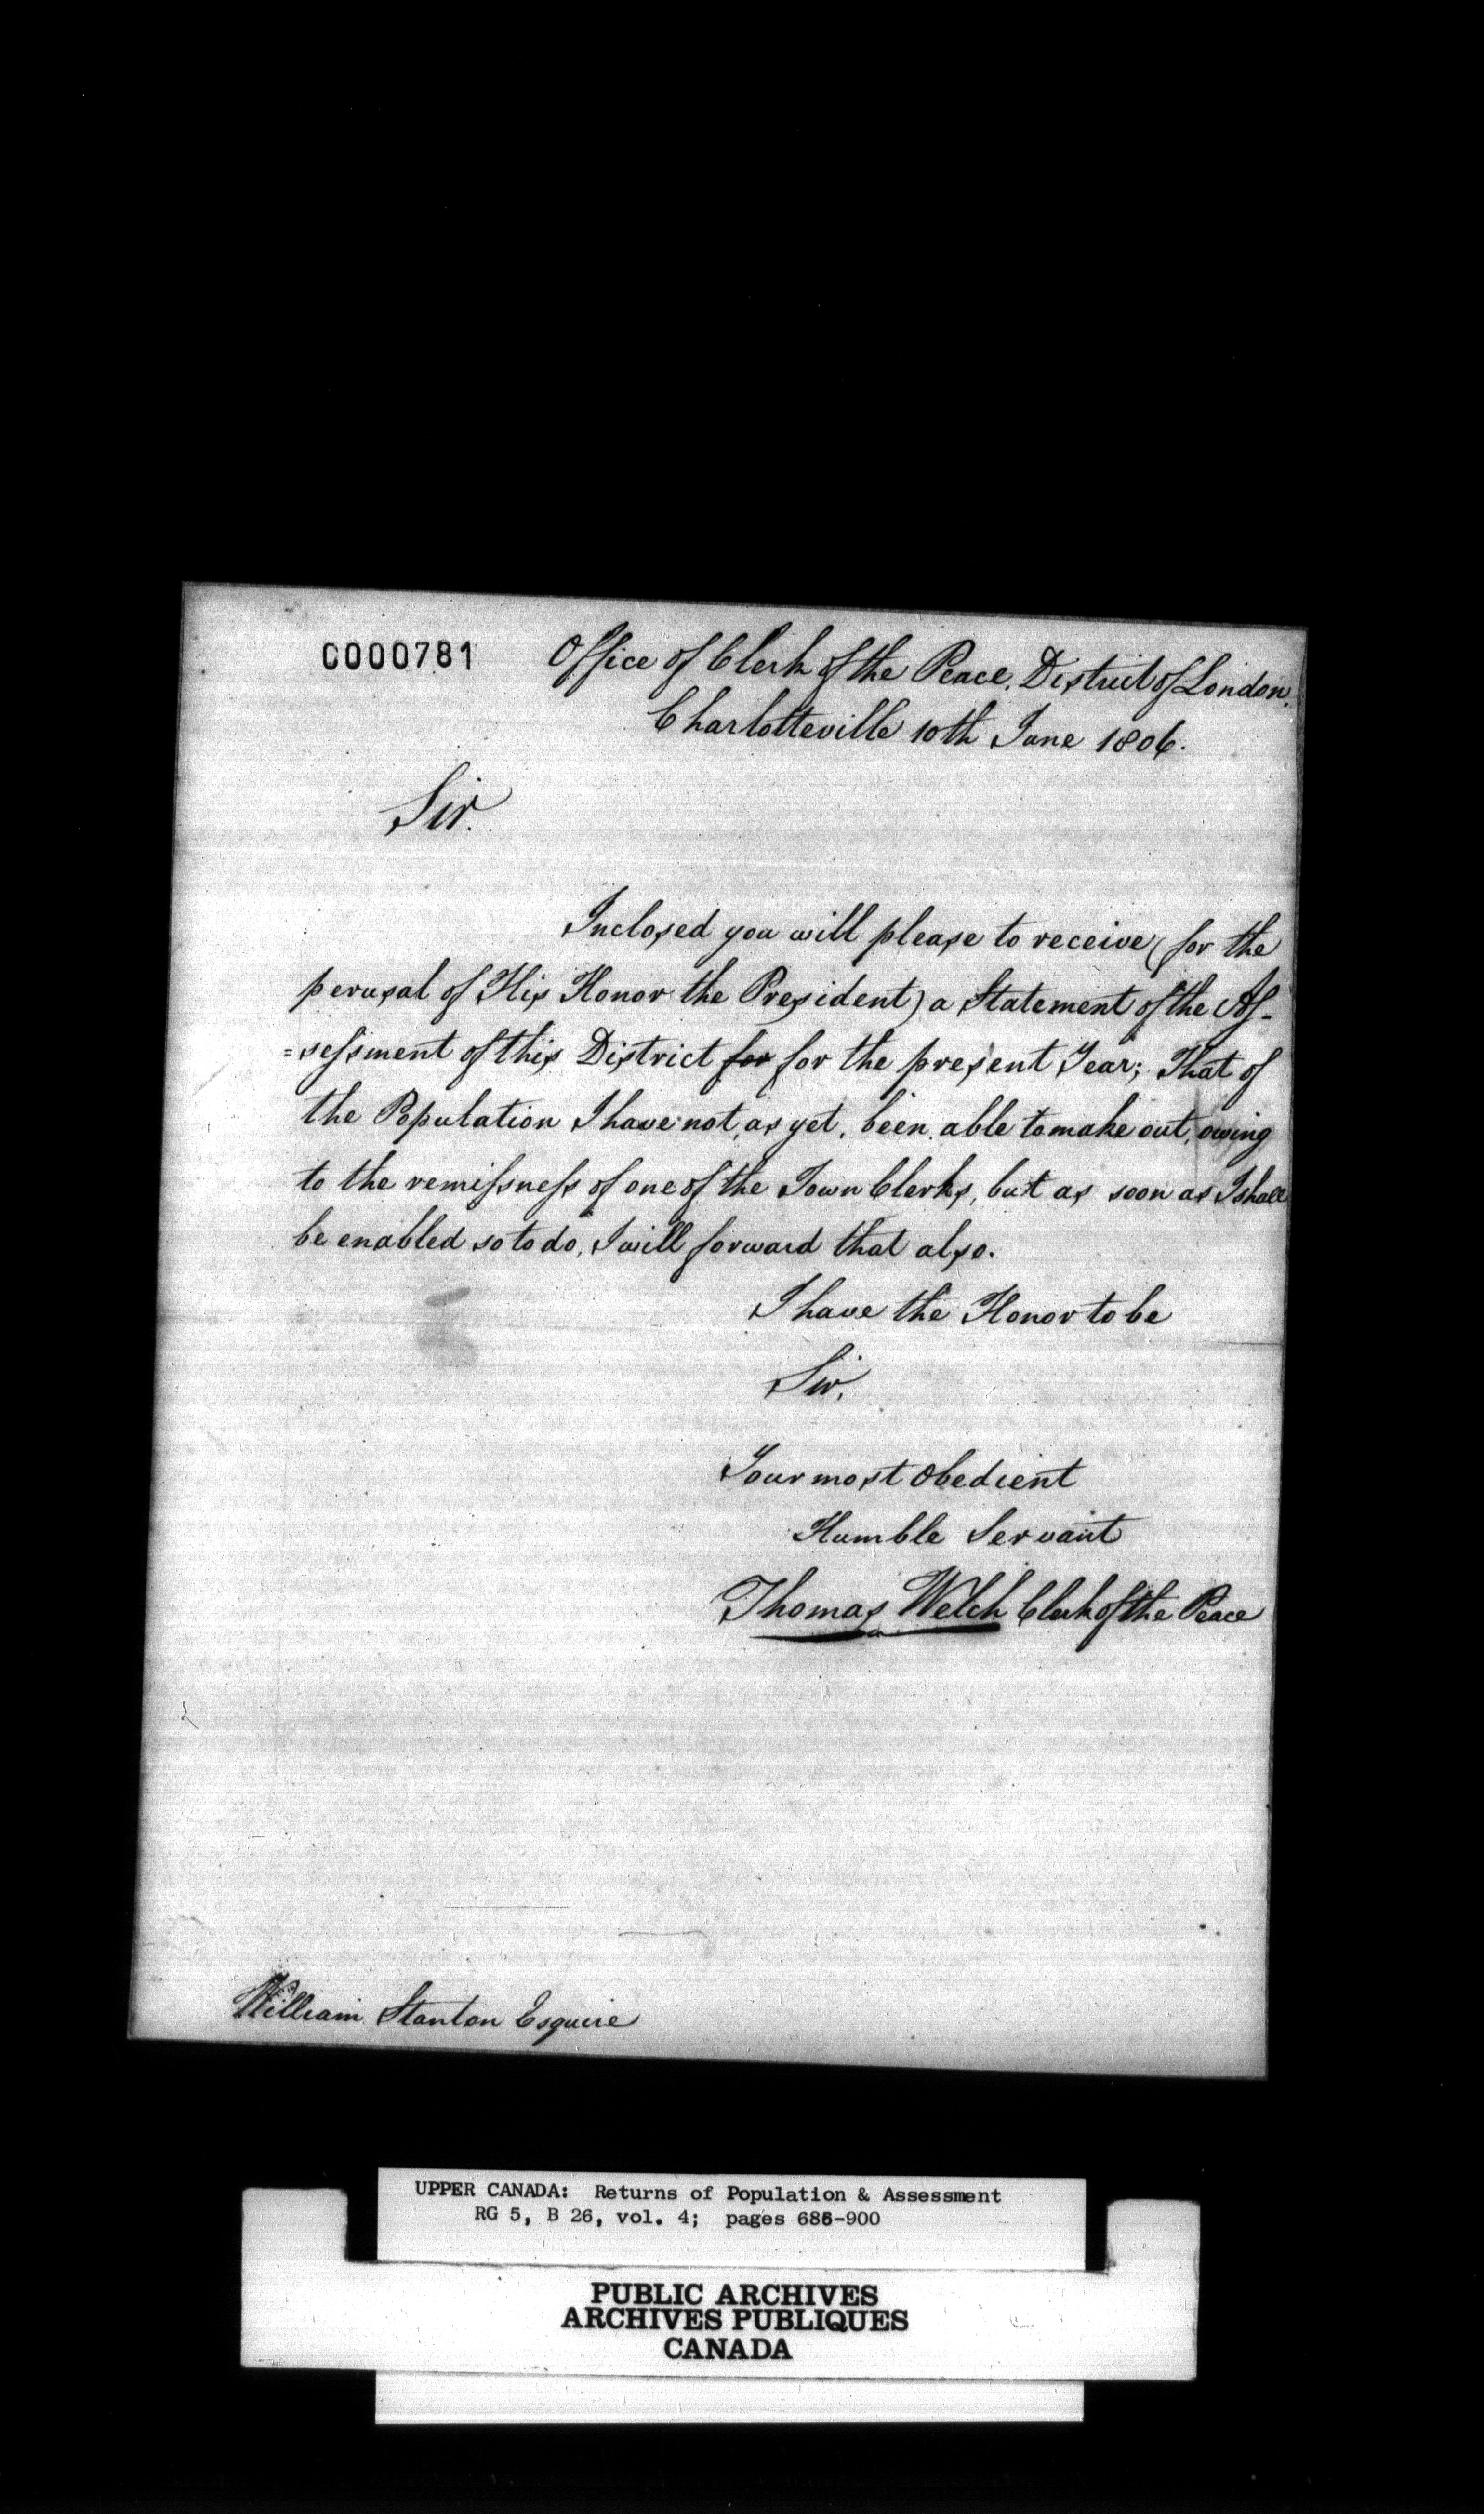 C000781
Office of Clerk of the Peace. District of London.
Charlotteville 10th June 1806.
Sir.
Inclosed you will please to receive (for the
perusal of His Honor the President) a Statement of the As-
=sessment of this District for for the present Year; That of
the Population I have not, as yet, been able to make out, owing
to the remissness of one of the Town Clerks, but as soon as I shall
be enabled so to do, I will forward that also.
I have the Honor to be
Sir,
Your most Obedient
Humble Servant
Thomas Welch Clerk of the Peace
William Stanton Esquire
UPPER CANADA: Returns of Population & Assessment
RG 5, B 26, vol. 4; pages 686-900
PUBLIC ARCHIVES
ARCHIVES PUBLIQUES
CANADA